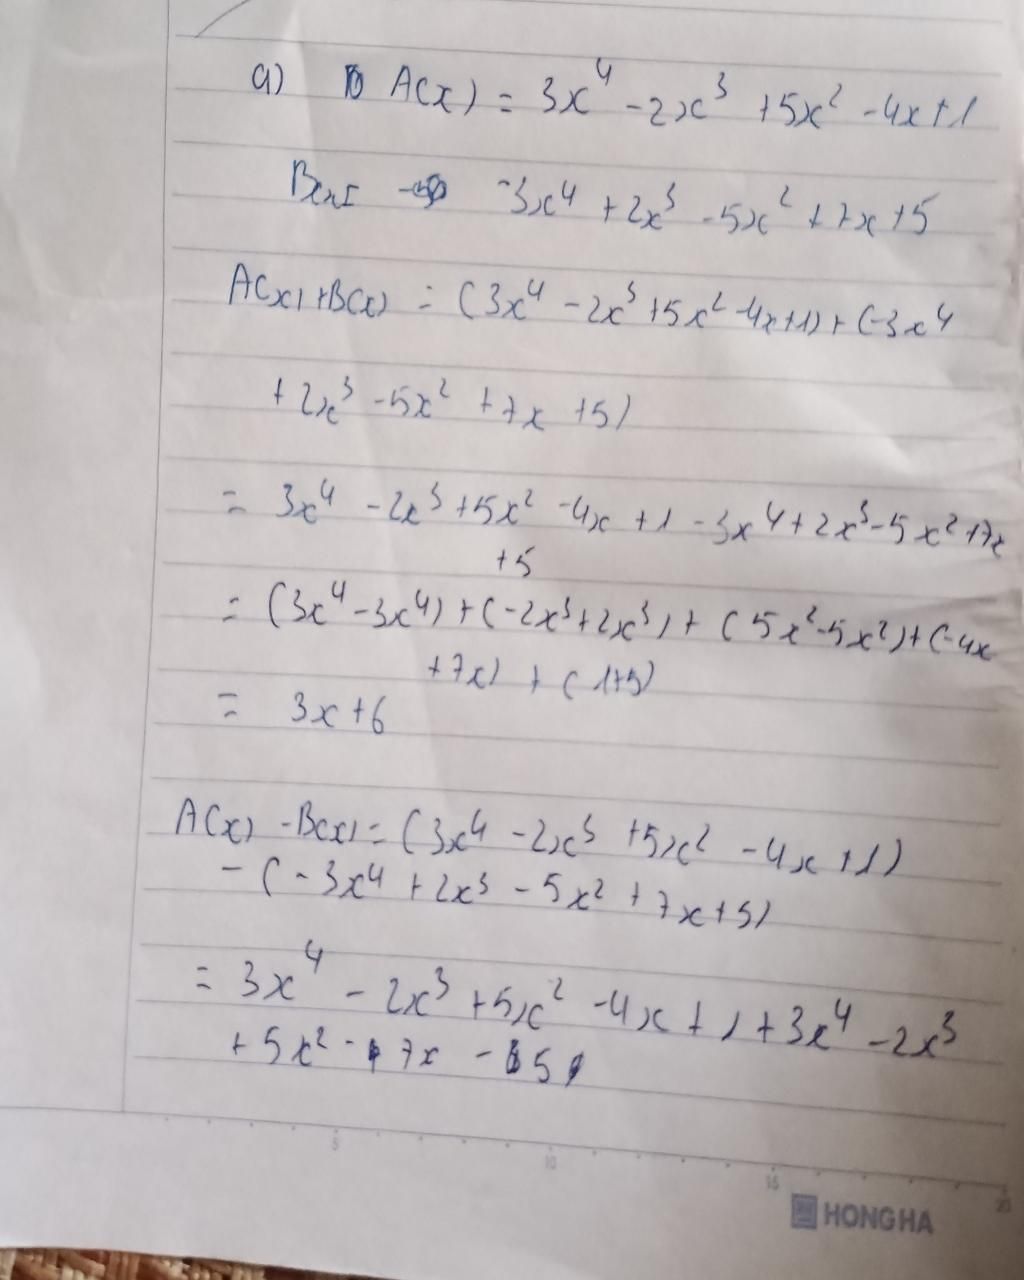 a) A(x) = 3x⁴ - 2x³ + 5x² - 4x + 1
B(x) = -3x⁴ + 2x³ - 5x² + 7x + 5
A(x) + B(x) = (3x⁴ - 2x³ + 5x² - 4x + 1) + (-3x⁴
+ 2x³ - 5x² + 7x + 5)
= 3x⁴ - 2x³ + 5x² - 4x + 1 - 3x⁴ + 2x³ - 5x² + 7x
+ 5
= (3x⁴ - 3x⁴) + (-2x³ + 2x³) + (5x² - 5x²) + (-4x
+ 7x) + (1+5)
= 3x + 6
A(x) - B(x) = (3x⁴ - 2x³ + 5x² - 4x + 1)
- (-3x⁴ + 2x³ - 5x² + 7x + 5)
= 3x⁴ - 2x³ + 5x² - 4x + 1 + 3x⁴ - 2x³
+ 5x² - 7x - 5
5 10 15 20
HONG HA